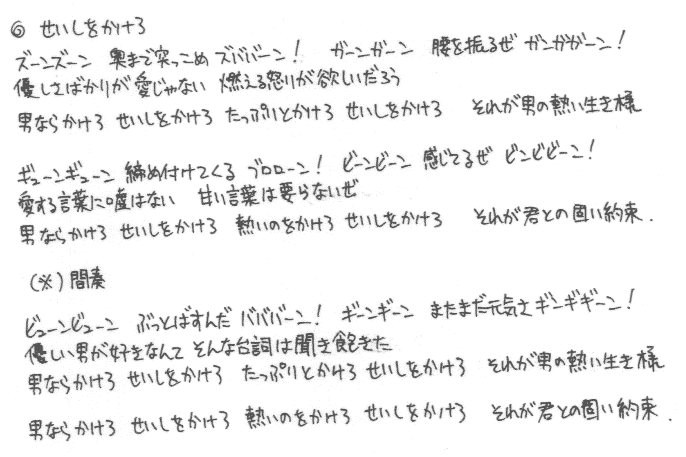 ◎ せいしをかけろ
ズーンズーン 奥まで突っこめ ズババババーン! ガーンガーン 腰を振るぜ ガンガガーン!
優しさばかりが愛じゃない 燃える怒りが欲しいだろう
男ならかけろ せいしをかけろ たっぷりとかけろ せいしをかけろ それが男の熱い生き様
ギューンギューン 締め付けてくる ブロローン! ビーンビーン 感じてるぜ ビンビビーン!
愛する言葉に嘘はない 甘い言葉は要らないぜ
男ならかけろ せいしをかけろ 熱いのをかけろ せいしをかけろ それが君との固い約束.
(※)間奏
ビューンビューン ぶっとばすんだ バババーン! ギーンギーン まだまだ元気さ ギンギギーン!
優しい男が好きなんて そんな台詞は聞き飽きた
男ならかけろ せいしをかけろ たっぷりとかけろ せいしをかけろ それが男の熱い生き様
男ならかけろ せいしをかけろ 熱いのをかけろ せいしをかけろ それが君との固い約束.